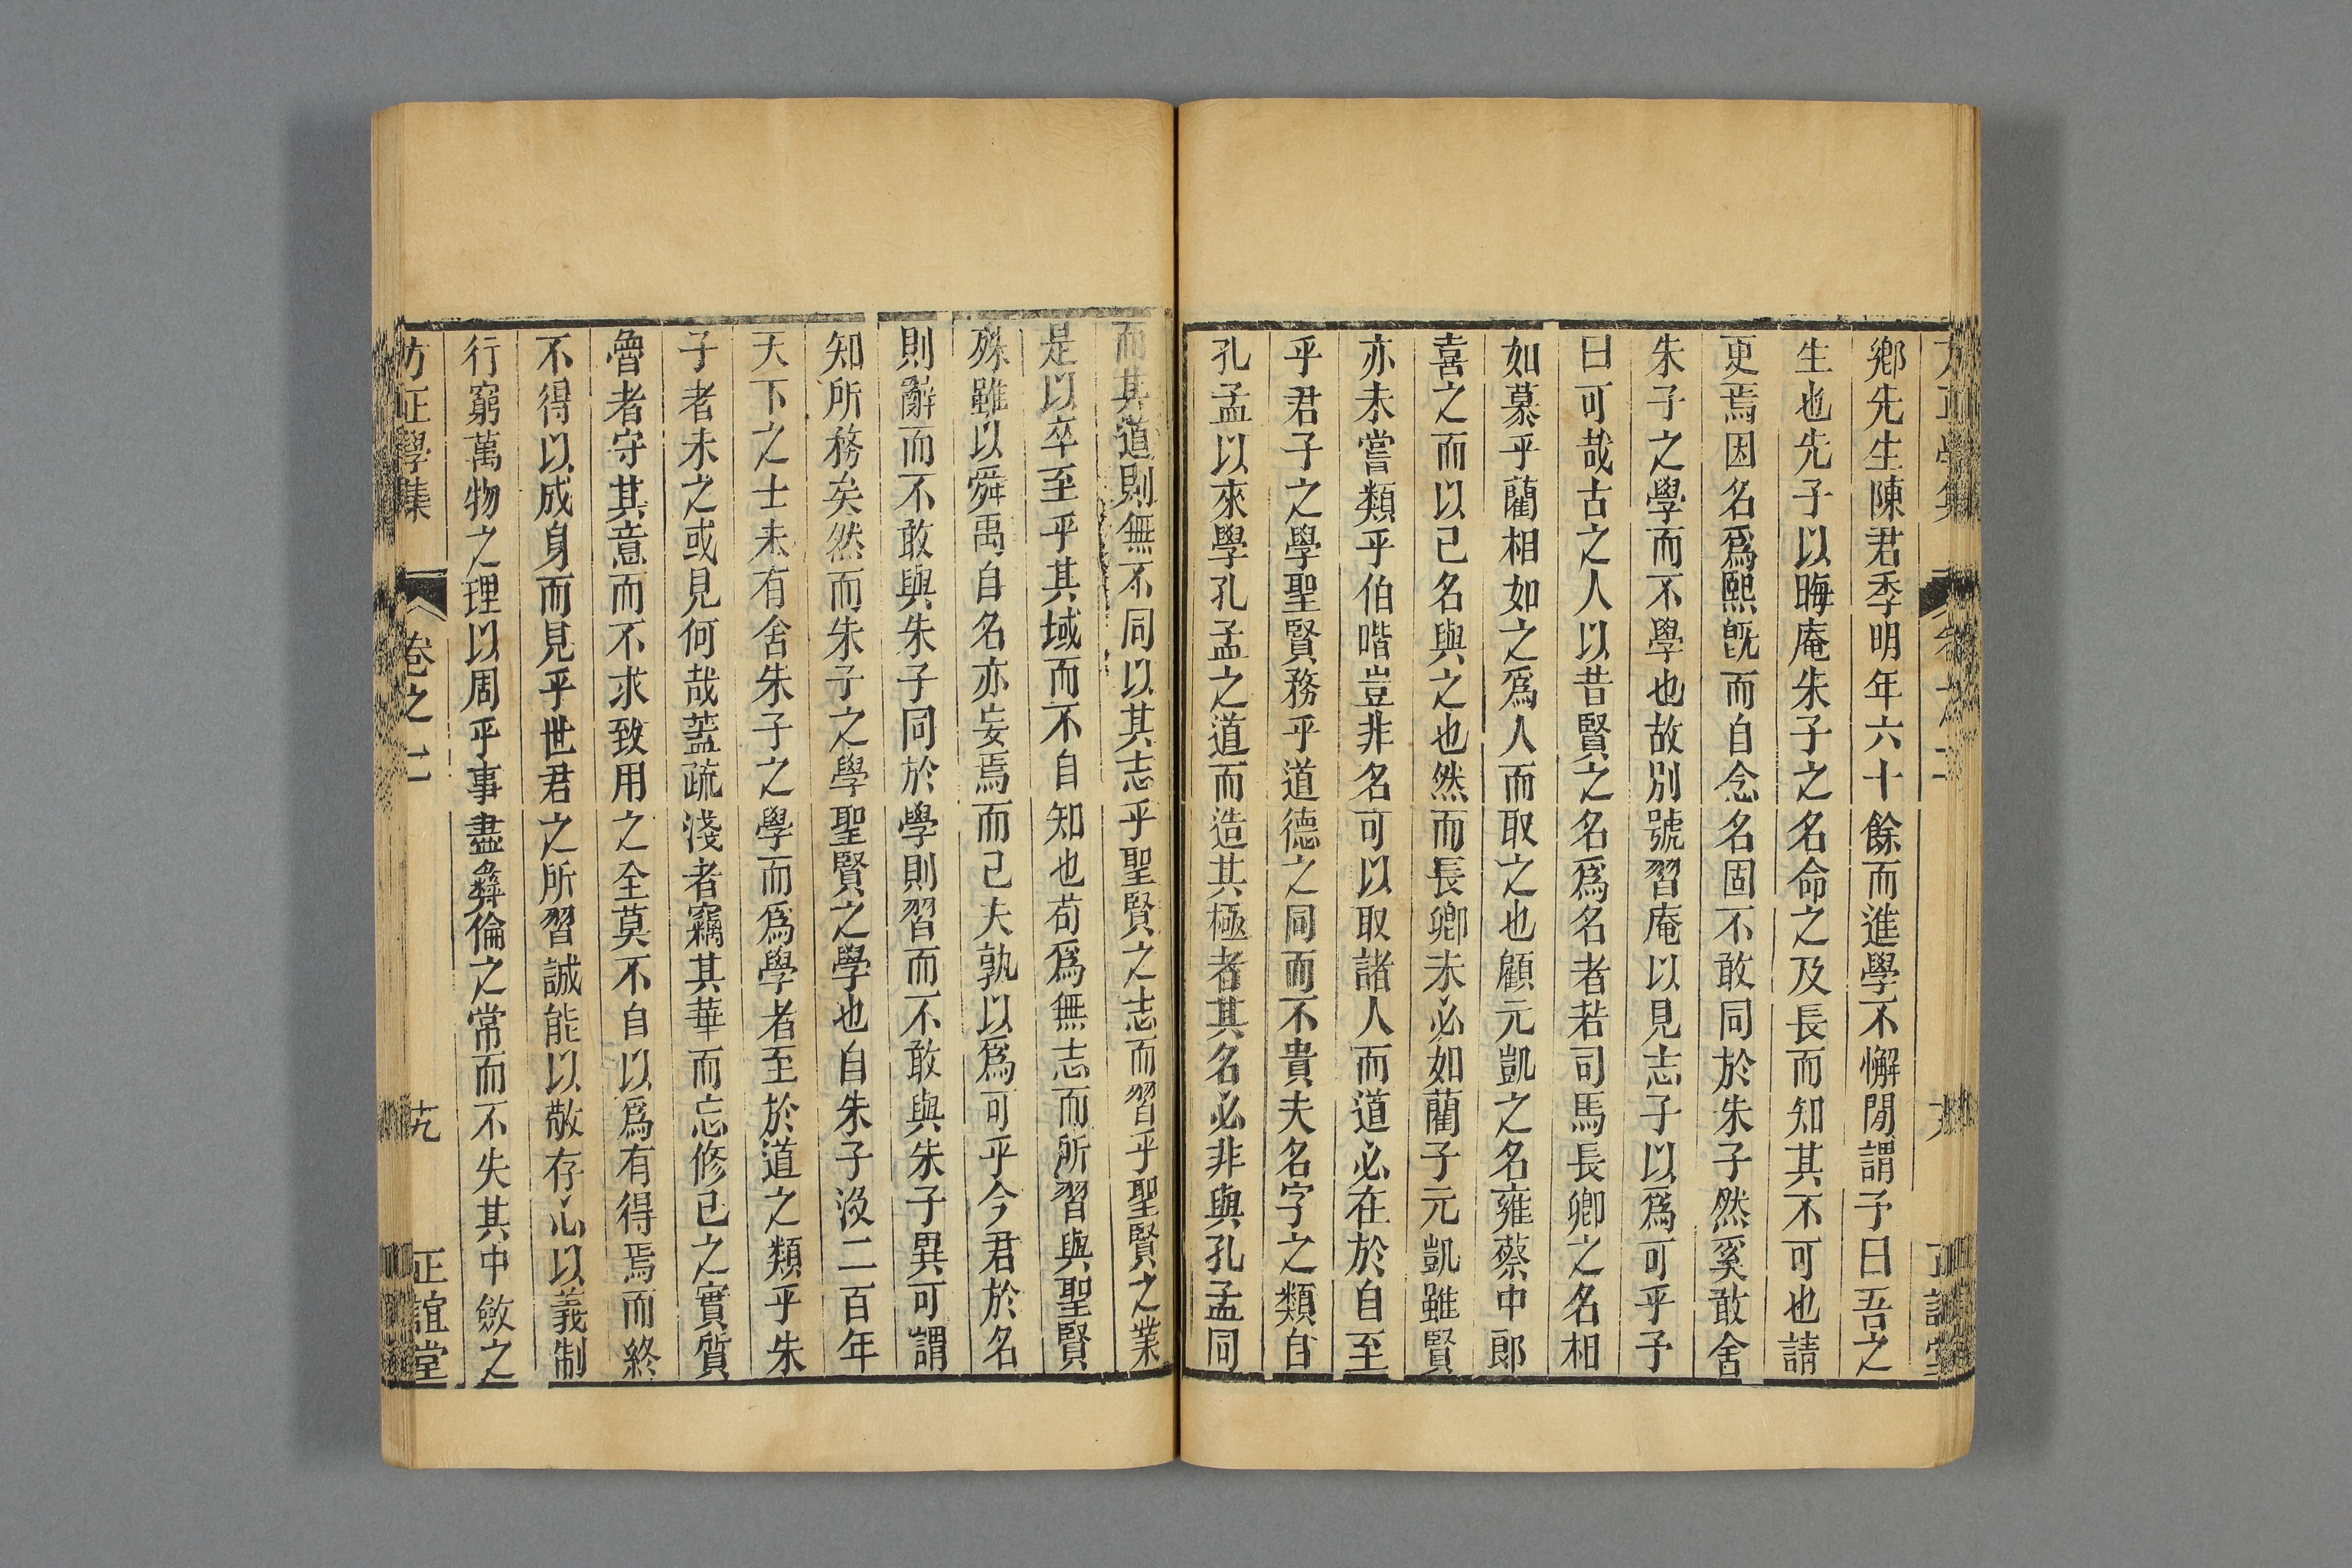 鄉先生陳君季明年六十餘而進學不懈閒謂予曰吾之
生也先子以晦庵朱子之名命之及長而知其不可也請
更焉因名爲熙旣而自念名固不敢同於朱子然奚敢舍
朱子之學而不學也故別號習庵以見志子以爲可乎予
曰可哉古之人以昔賢之名爲名者若司馬長卿之名相
如慕乎藺相如之爲人而取之也顧元凱之名雍蔡中郎
喜之而以己名與之也然而長卿未必如藺子元凱雖賢
亦未嘗類乎伯喈豈非名可以取諸人而道必在於自至
乎君子之學聖賢務乎道德之同而不貴夫名字之類自
孔孟以來學孔孟之道而造其極者其名必非與孔孟同
而其道則無不同以其志乎聖賢之志而習乎聖賢之業
是以卒至乎其域而不自知也苟爲無志而所習與聖賢
殊雖以舜禹自名亦妄焉而已夫孰以爲可乎今君於名
則辭而不敢與朱子同於學則習而不敢與朱子異可謂
知所務矣然而朱子之學聖賢之學也自朱子沒二百年
天下之士未有舍朱子之學而爲學者至於道之類乎朱
子者未之或見何哉蓋疏淺者竊其華而忘修己之實質
魯者守其意而不求致用之全莫不自以爲有得焉而終
不得以成身而見乎世君之所習誠能以敬存心以義制
行窮萬物之理以周乎事盡彝倫之常而不失其中斂之
方正學集
卷之二
十九
正誼堂